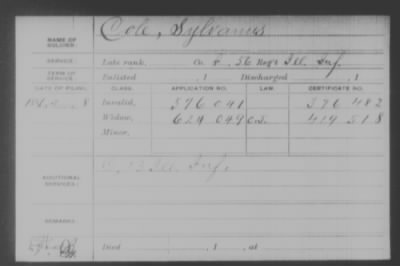 Cole, Sylvanus
NAME OF SOLDIER:
SERVICE: Late rank, Co. F, 56 Reg't Ill. Inf.
TERM OF SERVICE: Enlisted , 1 Discharged , 1
DATE OF FILING. CLASS. APPLICATION NO. LAW. CERTIFICATE NO.
Invalid, 576 041 396 482
Widow, 624 049 419 518
Minor,
ADDITIONAL SERVICES: Ill. Inf.
REMARKS:
Died , 1 , at